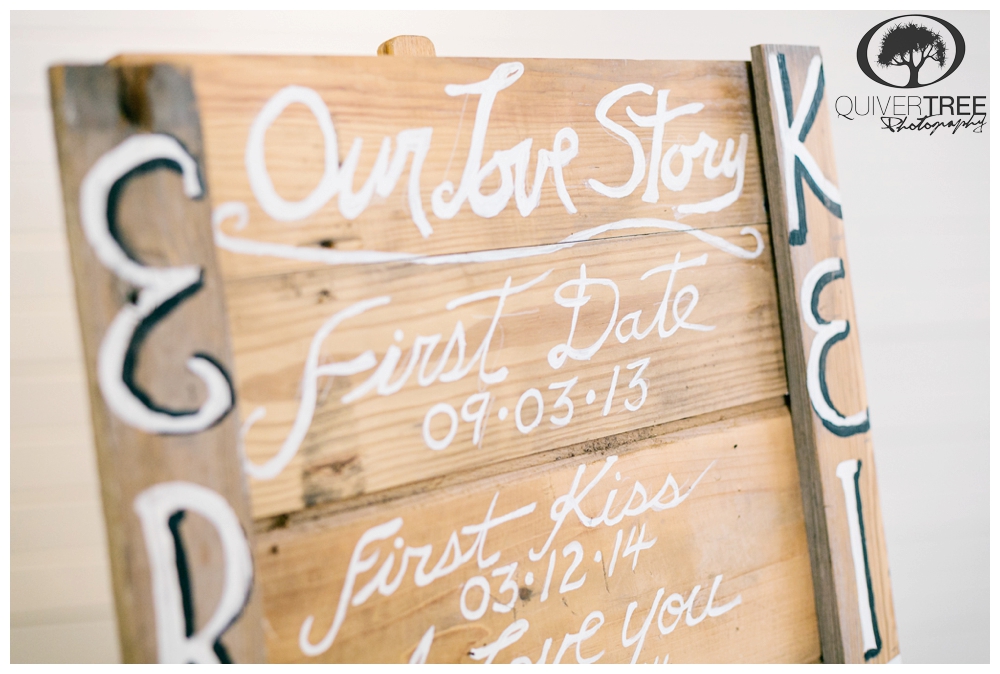 QUIVERTREE
Photography
Our Love Story
First Date
09·03·13
First Kiss
03·12·14
I Love you
E
R
K
E
I